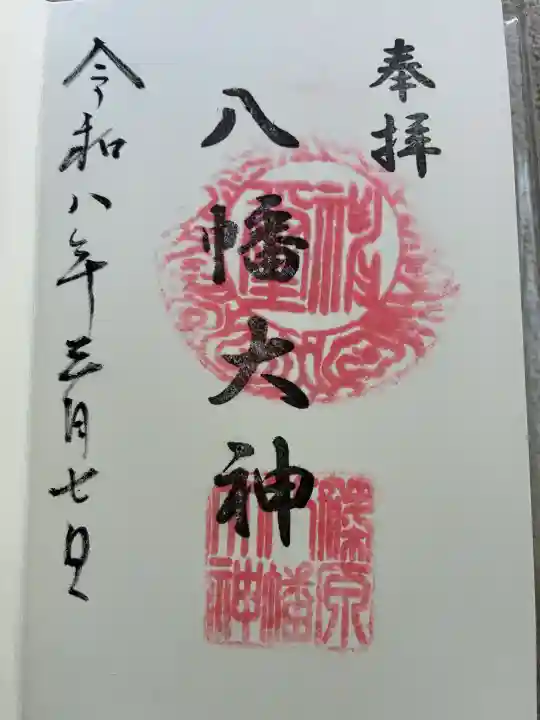 奉拝
八幡大神
篠原
八幡
大神
令和八年三月七日